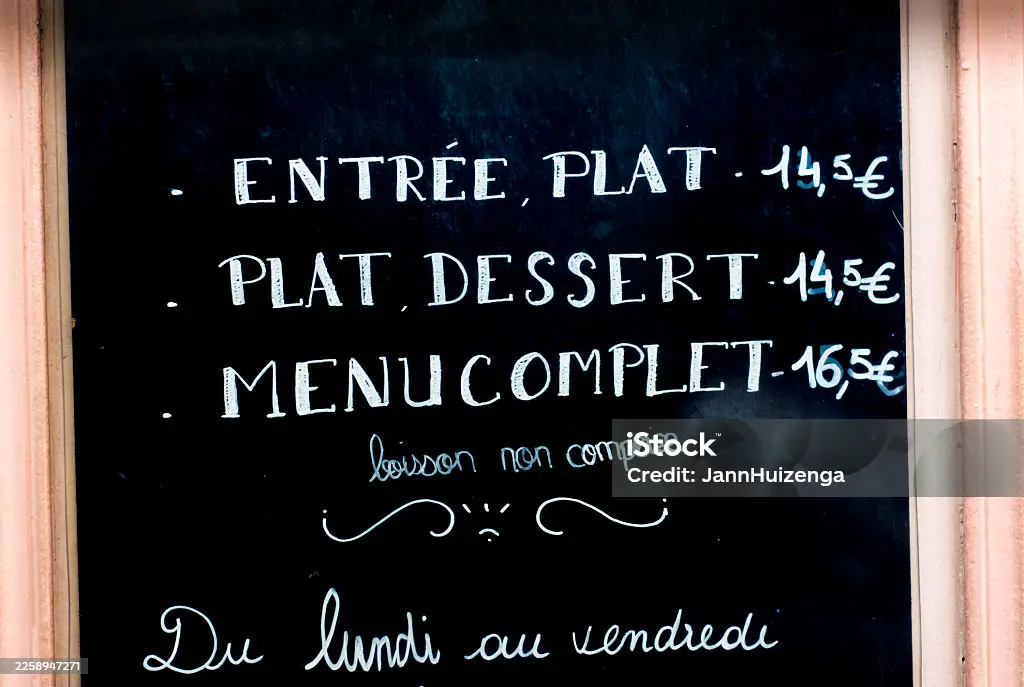 . ENTRÉE, PLAT. 14,5€
. PLAT, DESSERT. 14,5€
. MENU COMPLET-16,5€
boisson non
iStock™
Credit: JannHuizenga
Du lundi au vendredi
2258947271